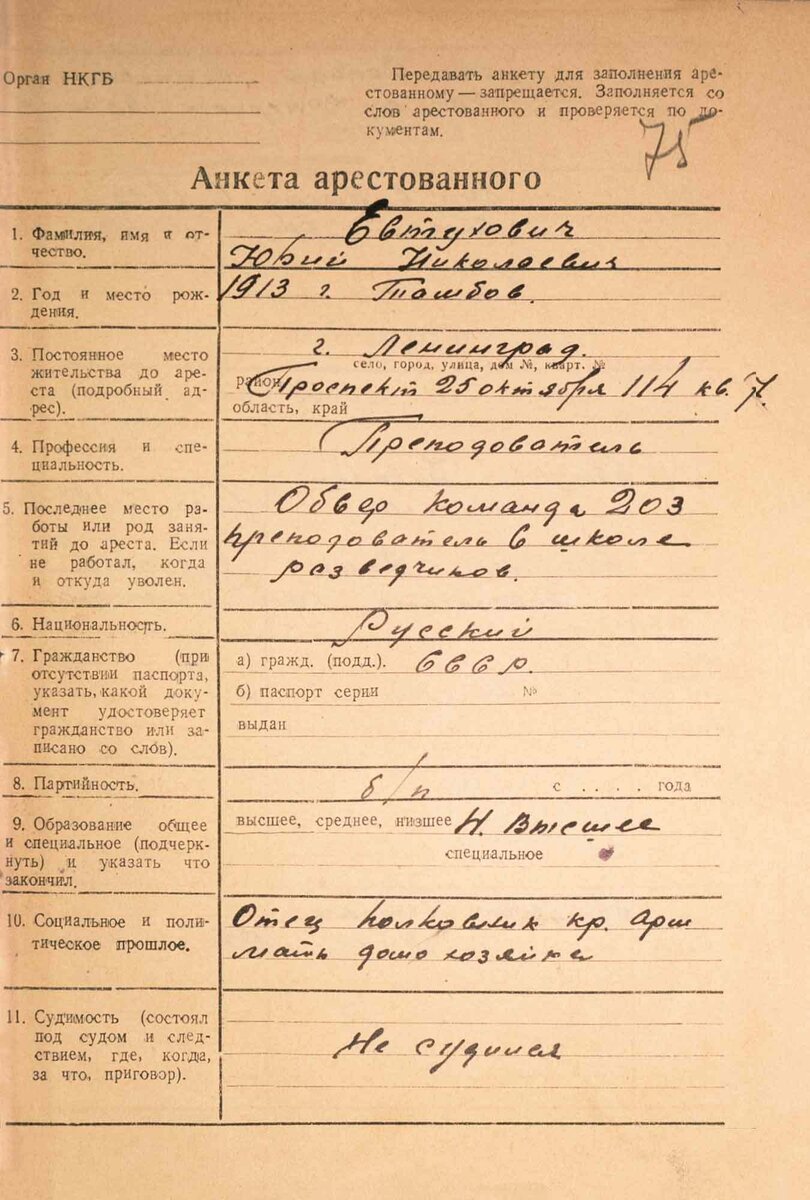 Орган НКГБ
Передавать анкету для заполнения аре-
стованному — запрещается. Заполняется со
слов арестованного и проверяется по до-
кументам.
75
Анкета арестованного
1. Фамилия, имя и от-
чество.
Евтухович
Юрий Николаевич
2. Год и место рож-
дения.
1913 г. Тамбов.
3. Постоянное место
жительства до аре-
ста (подробный ад-
рес).
г. Ленинград.
село, город, улица, дом №, кварт. №
район Проспект 25 октября 114 кв. 7.
область, край
4. Профессия и спе-
циальность.
Преподователь
5. Последнее место ра-
боты или род заня-
тий до ареста. Если
не работал, когда
и откуда уволен.
Обвер команда 203
преподователь в школе
разведчиков.
6. Национальность.
Русский
7. Гражданство (при
отсутствии паспорта,
указать, какой доку-
мент удостоверяет
гражданство или за-
писано со слов).
а) гражд. (подд.). СССР.
б) паспорт серии №
выдан
8. Партийность.
б/п с . . . . года
9. Образование общее
и специальное (подчерк-
нуть) и указать что
закончил.
высшее, среднее, низшее Н. Высшее
специальное
10. Социальное и поли-
тическое прошлое.
Отец полковник кр. арм
мать домохозяйка
11. Судимость (состоял
под судом и след-
ствием, где, когда,
за что, приговор).
Не судился